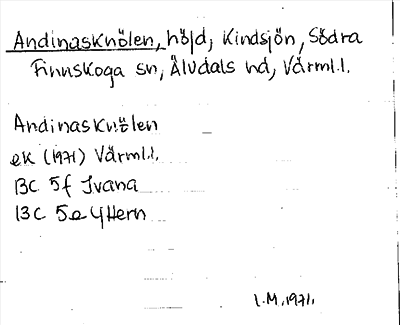 Andinasknölen, höjd, Kindsjön, Södra
Finnskoga sn, Älvdals hd, Värml.l.
Andinasknölen
ek (1971) Värml.l.
13C 5f Ivana
13C 5e Yttern
L.M. 1971.